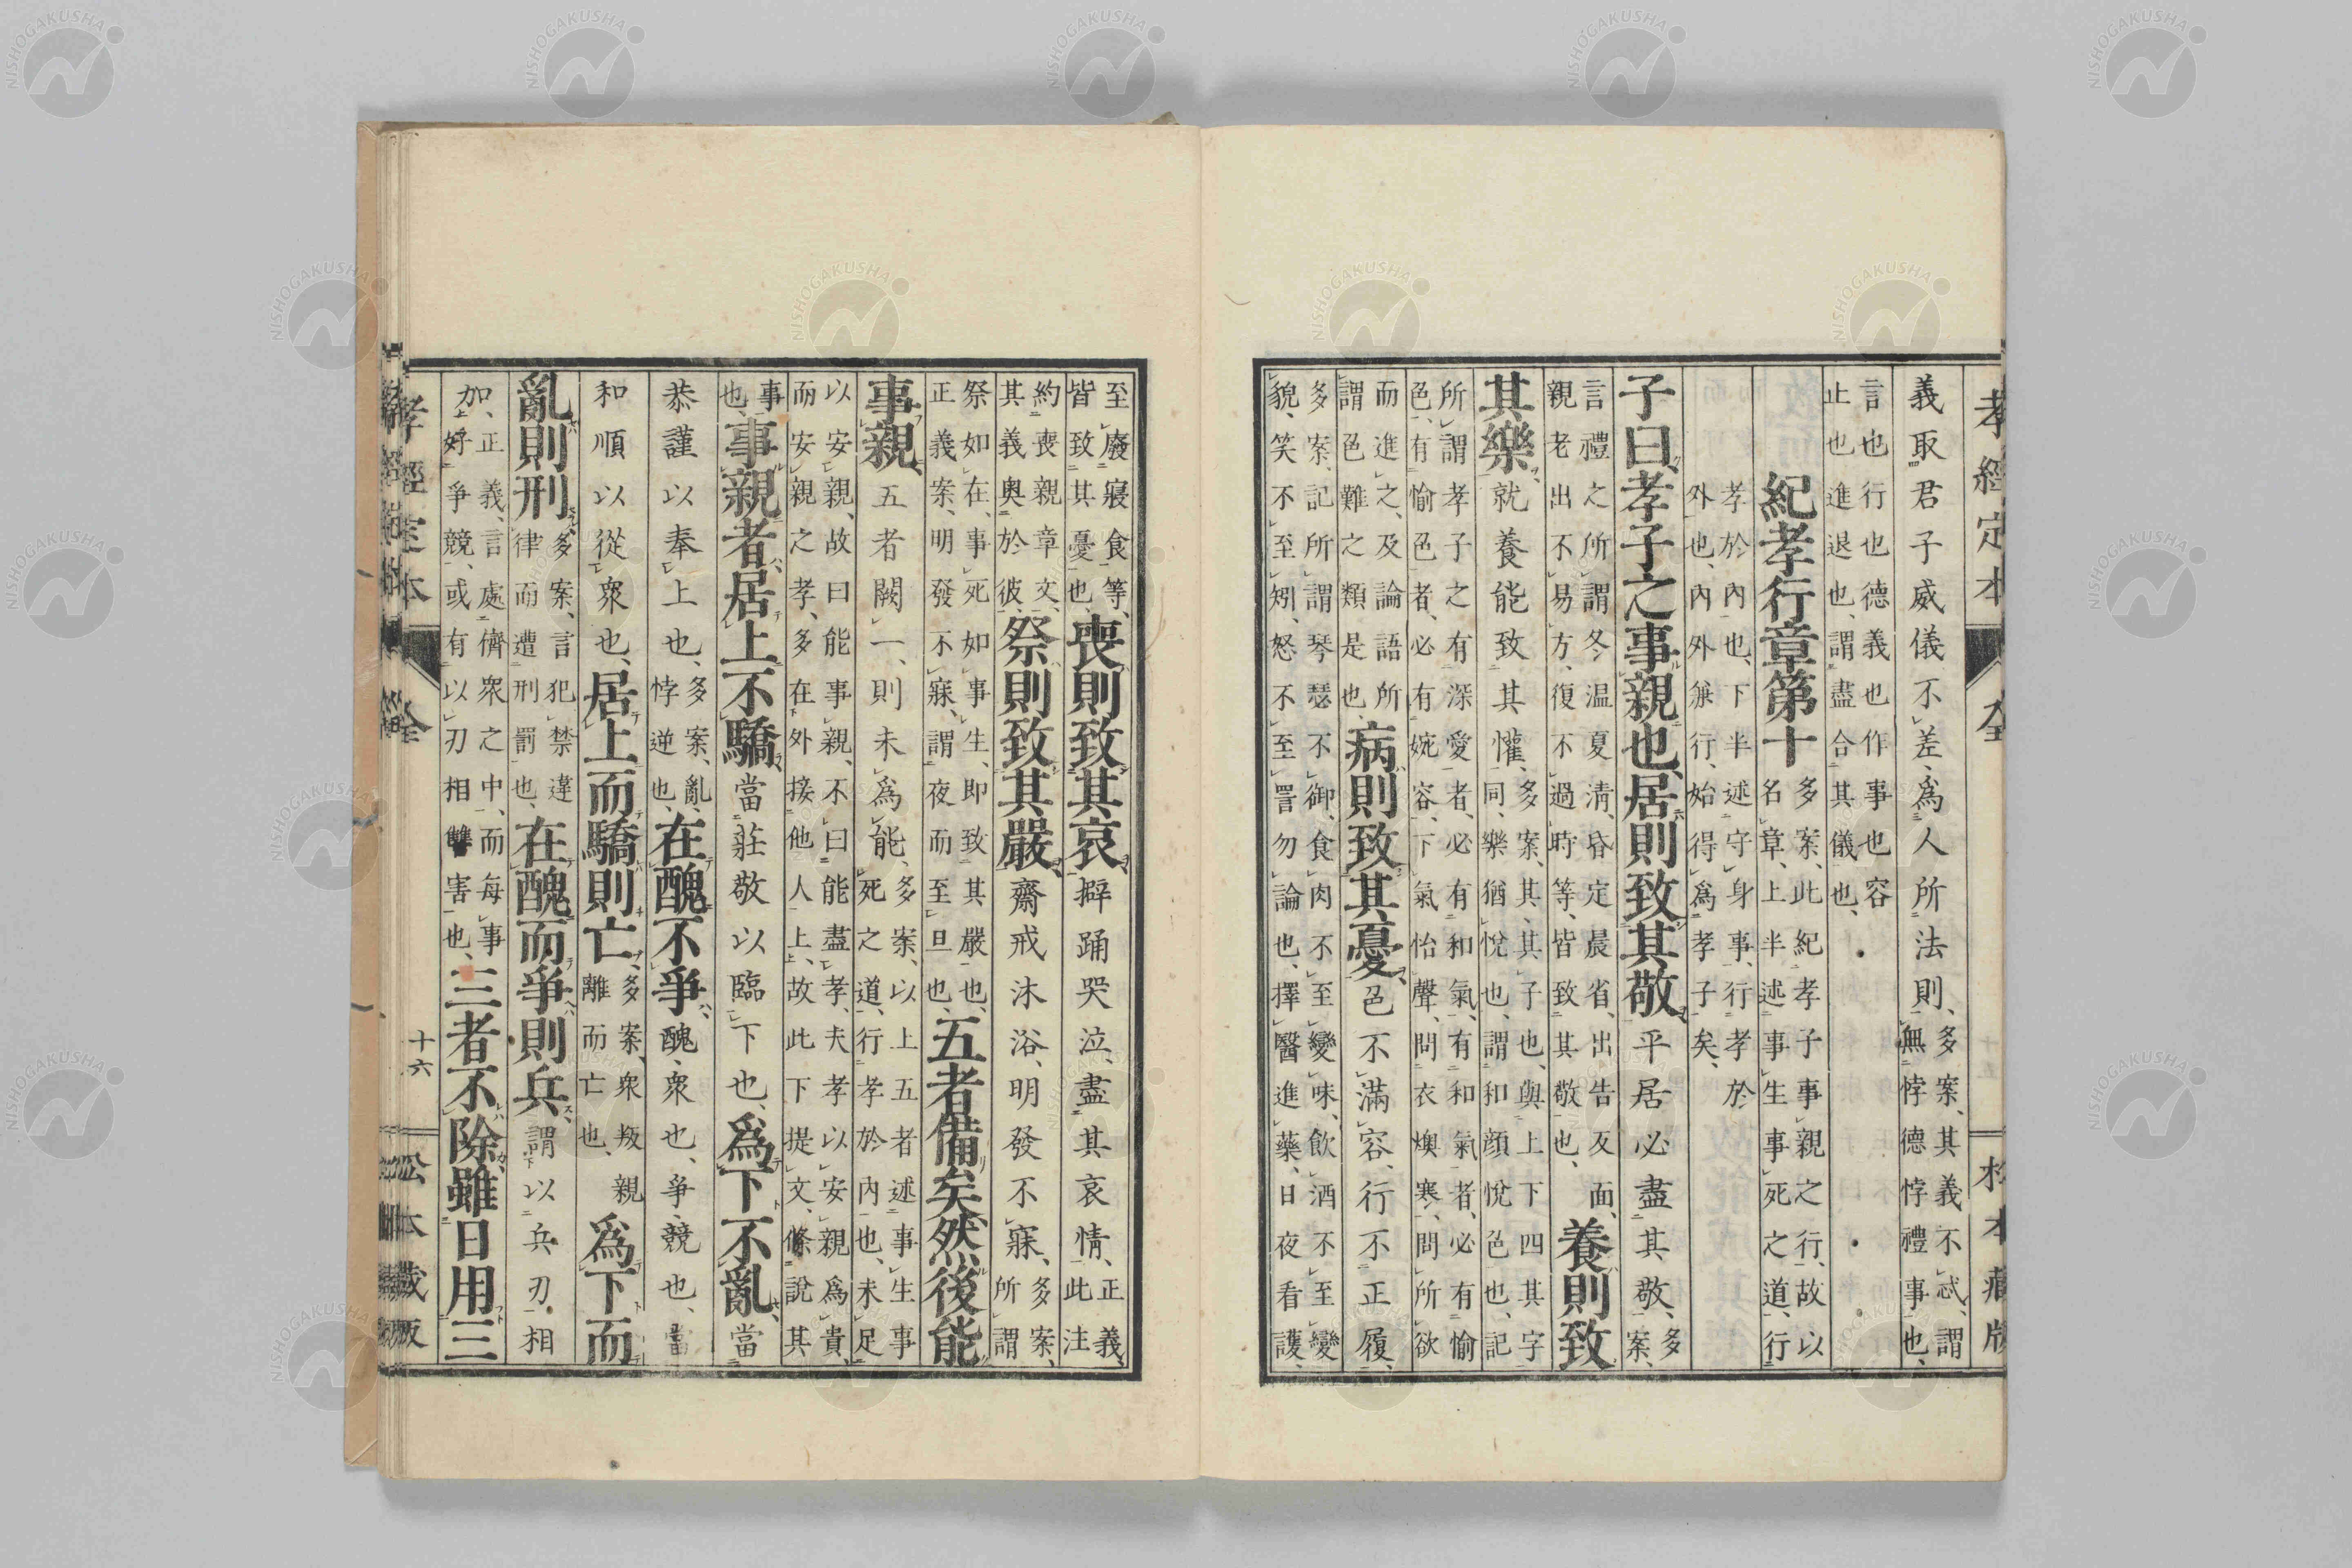 孝經定本 全 松本藏版
義取君子威儀不差、爲人所法則、無悖德悖禮事也、多案、其義不忒、謂
言也行也德義也作事也容
止也進退也、謂盡合其儀也、
紀孝行章第十 多案、此紀孝子事親之行、故以
名章、上半述事生事死之道、行
孝於內也、下半述守身事、行孝於
外也、內外兼行、始得爲孝子矣、
子曰、孝子之事親也、居則致其敬、平居必盡其敬、多案、
言禮之所謂冬溫夏凊、昏定晨省、出告反面、
親老出不易方、復不過時等、皆致其敬也、養則致
其樂、就養能致其懽、多案、其、其子也、與上下四其字
同、樂猶悅也、謂和顔悅色也、記
所謂孝子之有深愛者、必有和氣、有和氣者、必有愉
色、有愉色者、必有婉容、下氣怡聲、問衣燠寒、問所欲
而進之、及論語所
謂色難之類是也、病則致其憂、色不滿容、行不正履、
多案、記所謂琴瑟不御、食肉不至變味、飲酒不至變
貌、笑不至矧、怒不至詈、勿論也、擇醫進藥、日夜看護、
至廢寢食等、
皆致其憂也、喪則致其哀、擗踊哭泣、盡其哀情、正義、
此注
約喪親章文、
其義奥於彼、祭則致其嚴、齋戒沐浴、明發不寐、多案、
所謂
祭如在、事死如事生、即致其嚴也、
正義案、明發不寐、謂夜而至旦也、五者備矣、然後能
事親、五者闕一、則未爲能、多案、以上五者述事生事
死之道、行孝於內也、未足
以安親、故曰能事親、不曰能盡孝、夫孝以安親爲貴、
而安親之孝、多在外接他人上、故此下提文、條說其
事
也、事親者、居上不驕、當莊敬以臨下也、爲下不亂、當
恭謹以奉上也、多案、亂、
悖逆也、在醜不爭、醜、衆也、爭、競也、當
和順以從衆也、居上而驕則亡、多案、衆叛親
離而亡也、爲下而
亂則刑、多案、言犯禁違
律而遭刑罰也、在醜而爭則兵、謂以兵刃相
加、正義、言處儕衆之中、而每事
好爭競、或有以刃相讎害也、三者不除、雖日用三
孝經定本 全 十六 松本藏版